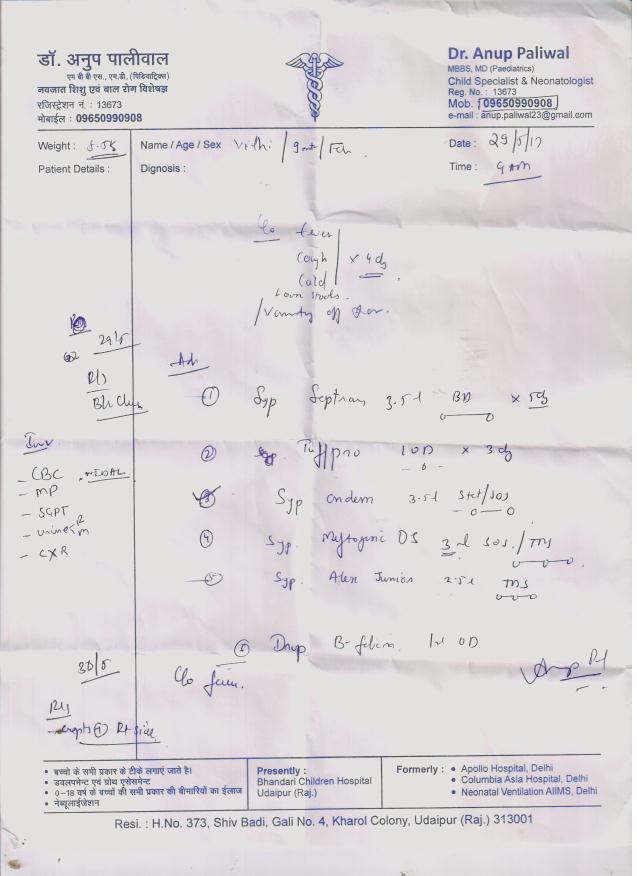 डॉ. अनुप पालीवाल
एम बी बी एस., एम.डी, (पिडियाट्रिक्स)
नवजात शिशु एवं बाल रोग विशेषज्ञ
रजिस्ट्रेशन नं. : 13673
मोबाईल : 09650990908
Dr. Anup Paliwal
MBBS, MD (Paediatrics)
Child Specialist & Neonatologist
Reg. No. : 13673
Mob. 09650990908
e-mail : anup.paliwal23@gmail.com
Weight :
Patient Details :
Name / Age / Sex
Dignosis :
Date : 29/5/17
Time : 9 am
C/o fever
Cough
Cold
x 4d
29/5
Adv
① Syp Septran 3.5ml BD x 5d
② OD x 3d
③ Syp 3.5ml Stat/SOS
④ Syp. DS 3ml SOS/TDS
⑤ Syp. Alex Junior 2.5ml TDS
Inv
- CBC
- MP
- SGPT
- Urine R/M
- CXR
⑥ Drop 1ml OD
30/5
C/o fever
Rt side
• बच्चो के सभी प्रकार के टीके लगाएं जाते है।
• डवलपमेन्ट एवं ग्रोथ एसेसमेन्ट
• 0–18 वर्ष के बच्चों की सभी प्रकार की बीमारियों का ईलाज
• नेब्यूलाईजेशन
Presently :
Bhandari Children Hospital
Udaipur (Raj.)
Formerly : • Apollo Hospital, Delhi
• Columbia Asia Hospital, Delhi
• Neonatal Ventilation AIIMS, Delhi
Resi. : H.No. 373, Shiv Badi, Gali No. 4, Kharol Colony, Udaipur (Raj.) 313001